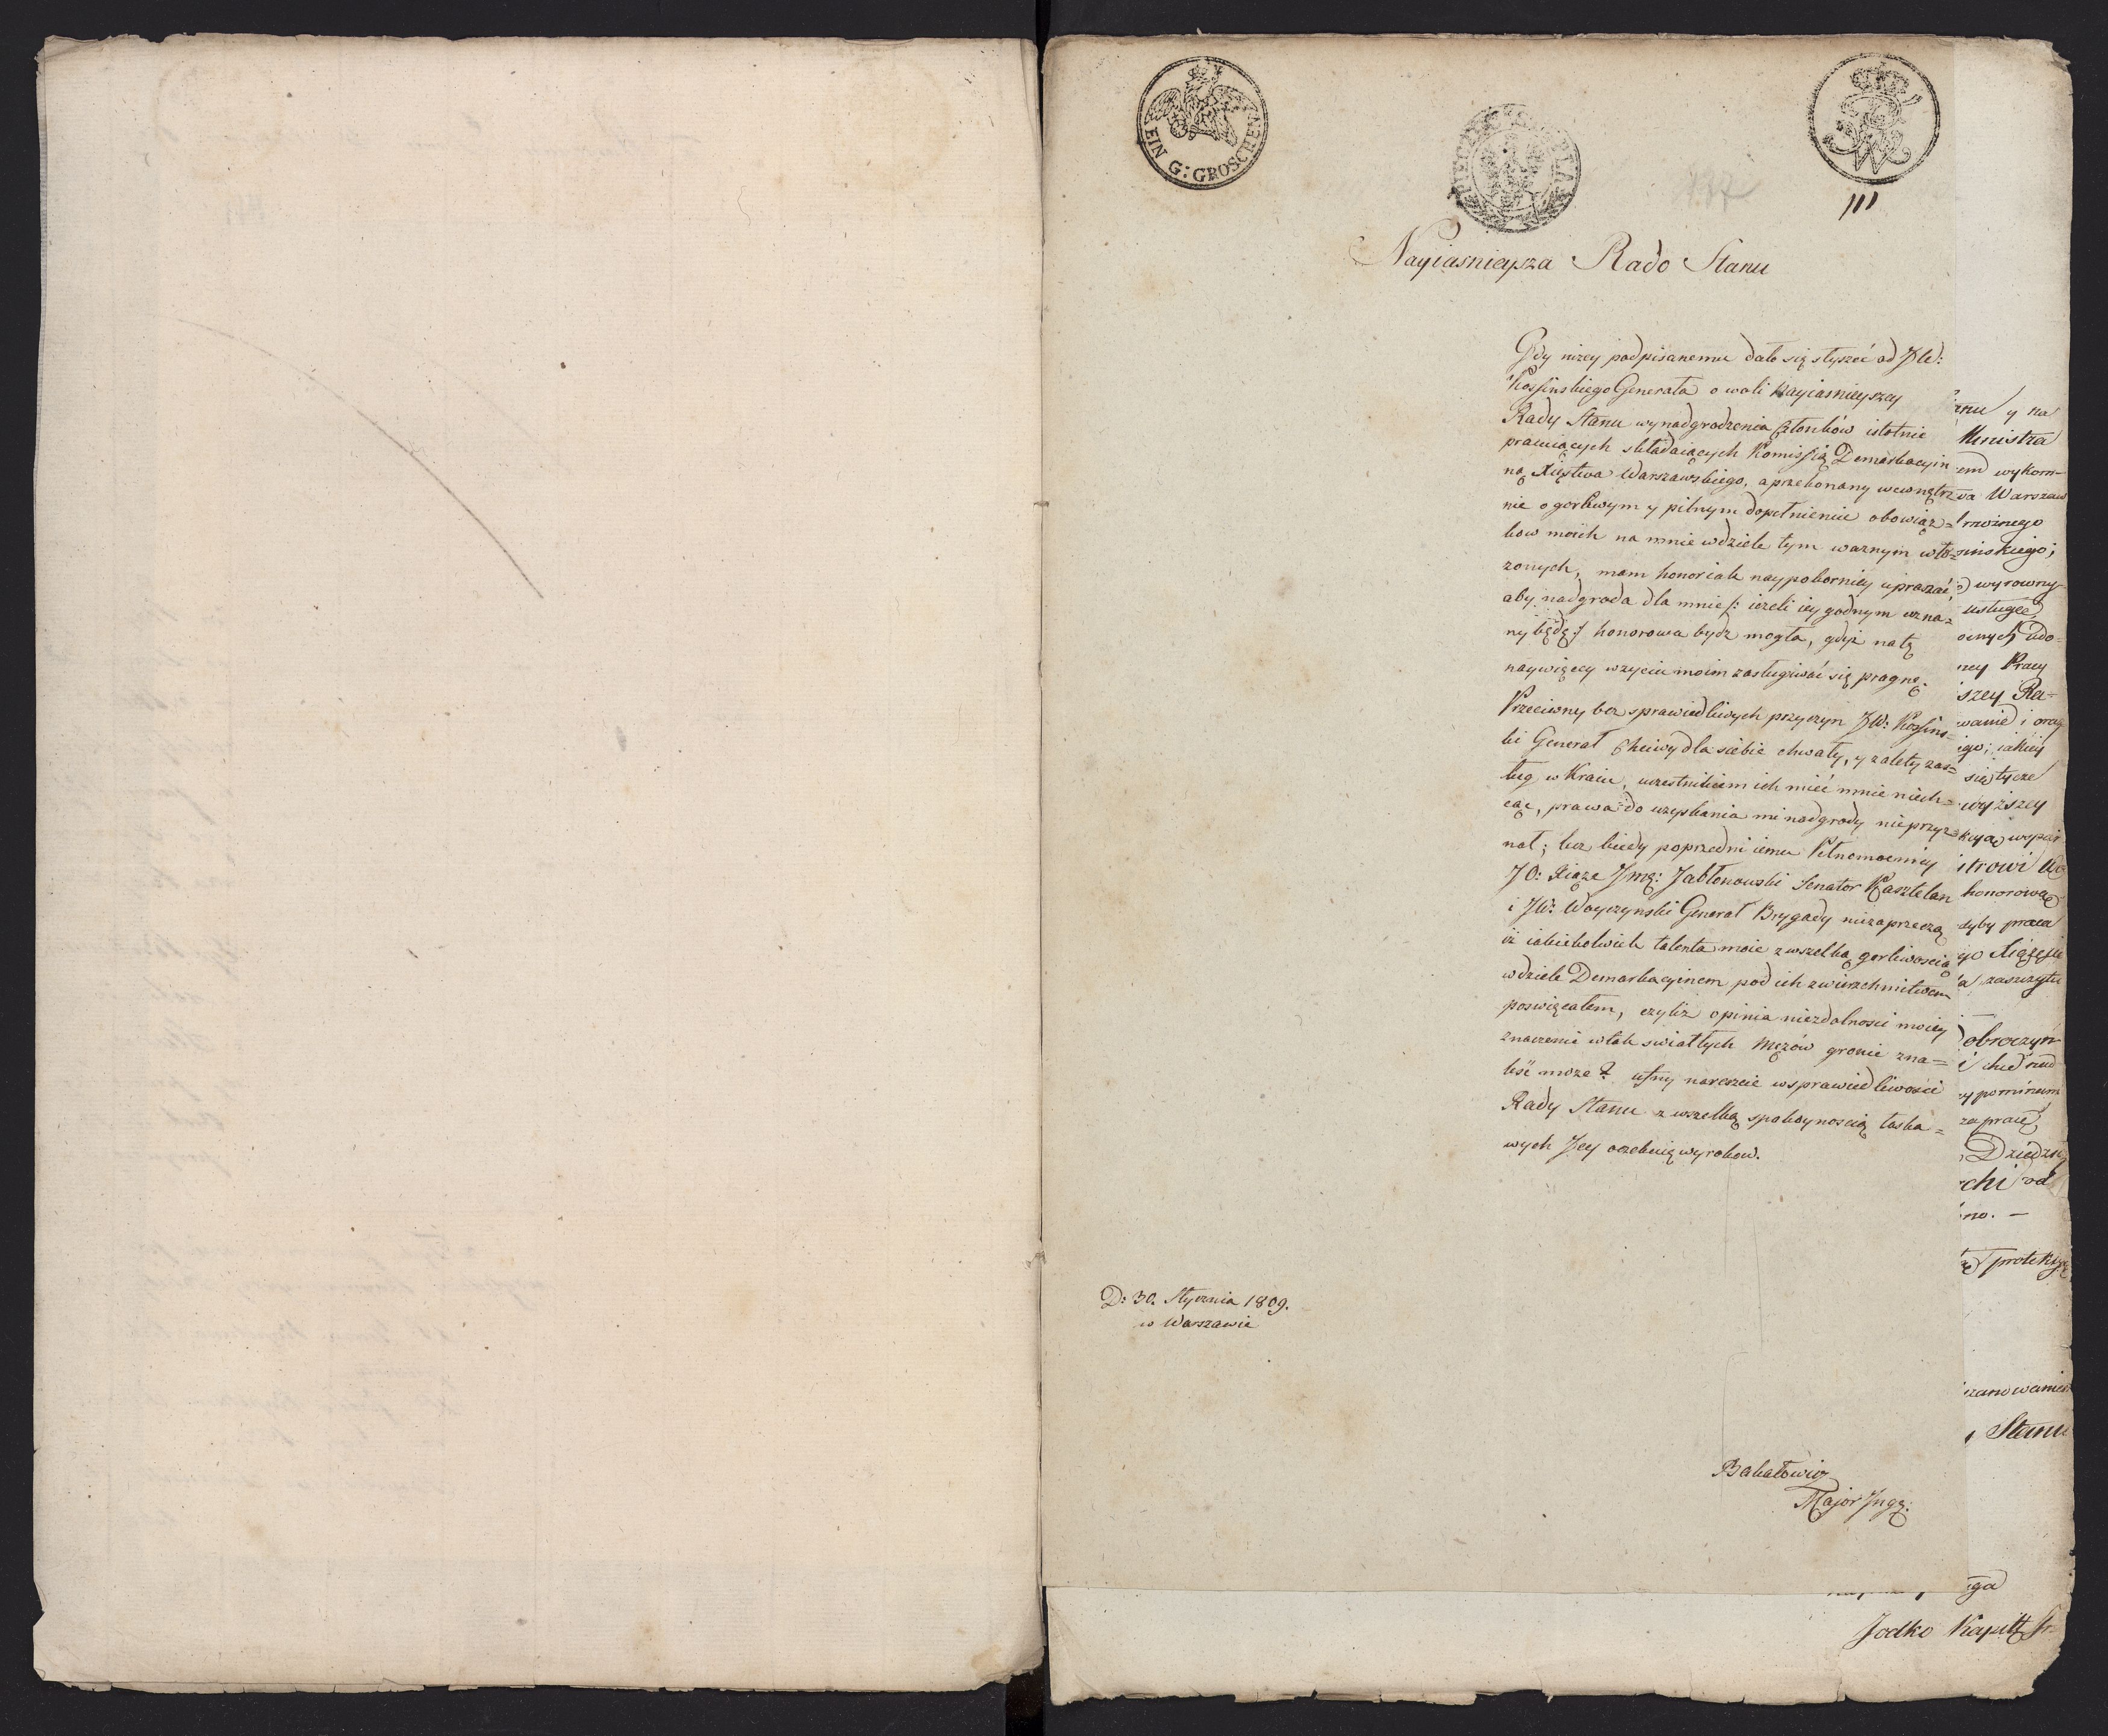 EIN G: GROSCHEN
137
111
Nayiasnieysza Rado Stanu
Gdy niżey podpisanemu dało się słyszeć od JW:
Kossinskiego Generała o woli Nayiasnieyszey
Rady Stanu wynadgrodzenia Członków istotnie
pracuiących składaiących Komissią Demarkacyin
ną Xięstwa Warszawskiego, a przekonany wewnętrz
nie o gorliwym y pilnym dopełnieniu obowiąz=
kow moich na mnie w dziele tym waznym wło=
zonych, mam honor iak naypokorniey upraszać
aby nadgroda dla mnie /: ieżeli iey godnym uzna=
ny będę :/ honorowa bydź mogła, gdyż na tę
naywięcey w zyciu moim zasługiwać się pragnę.
Przeciwny bez sprawiedliwych przyczyn JW: Kossins=
ki Generał Chciwy dla siebie chwały, y zalety zas=
ług w Kraiu, uczestnikiem ich mieć mnie niech=
cąc, prawa do uzyskania mi nadgrody nieprzyz
nał; lecz kiedy poprzedni iemu Pełnomocnicy
JO: Xiąże Jmć: Jabłonowski Senator Kasztelan
i JW: Woyczynski Generał Brygady niezaprzeczą
iż iakiekolwiek talenta moie z wszelką gorliwoscią
w dziele Demarkacyinem pod ich zwierzchnictwem
poswięcałem, czyliż opinia niezdolnosci moiey
znaczenie w tak swiatłych Męzów gronie zna=
leść może? ufny nareszcie w sprawiedliwości
Rady Stanu z wszelką spokoynoscią łaska=
wych Jey oczekuię wyrokow.
D: 30. Stycznia 1809.
w Warszawie
Bakałowicz
Major Inge:
Stanu y na
Ministra
wykom-
Warszaw
sinskiego;
wyrowny
usługę
ney Pracy
szey Ra=
wanie i oraz
iakiey
się tycze
wyższey
honorową
dyby praca
Xiążęcia
zaszczytu
obroczyn
za pracę,
Dziedzic
chi od
no. —
protekcyę
Stanu
Jodko Kapitt